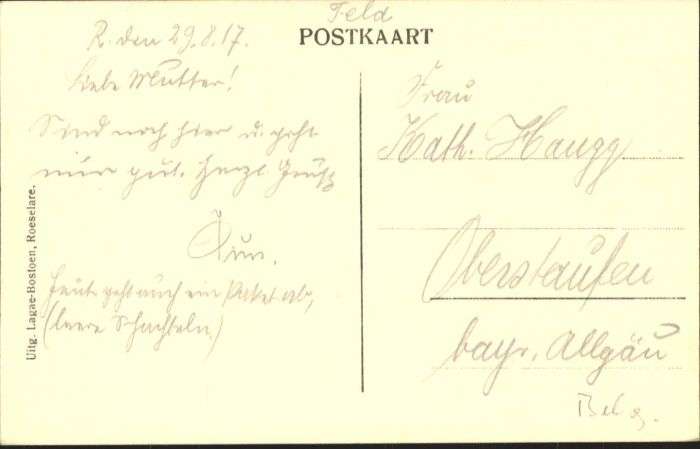 Feld
POSTKAART
R. den 29.8.17.
Liebe Mutter!
Sind noch hier u. geht
mir gut. Herzl. Grüße
Heute geht auch ein Paket ab,
(leere Schachteln.)
Frau
Kath. Haugg
Oberstaufen
bayr. Allgäu
Uitg. Lagae-Bostoen, Roeselare.